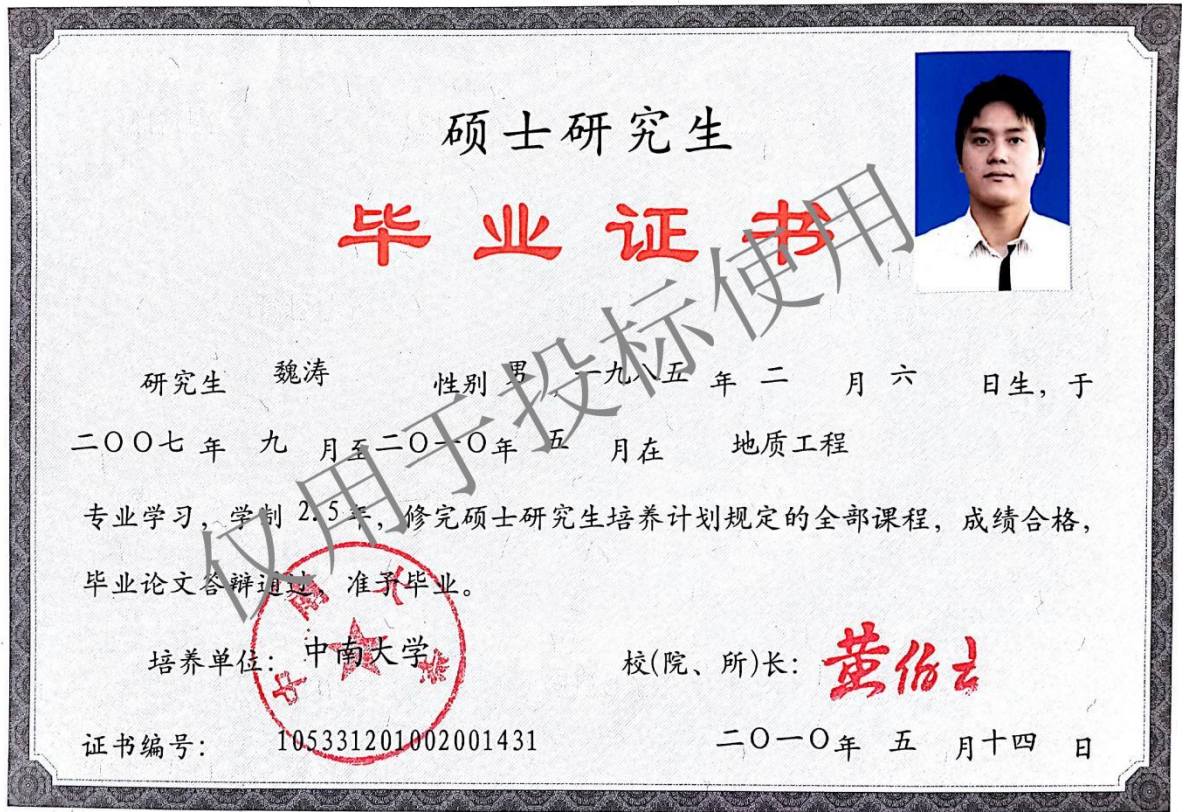 硕士研究生
毕业证书
研究生 魏涛 性别 男, 一九八五 年 二 月 六 日生, 于
二〇〇七 年 九 月至 二〇一〇 年 五 月在 地质工程
专业学习, 学制 2.5 年, 修完硕士研究生培养计划规定的全部课程, 成绩合格,
毕业论文答辩通过, 准予毕业。
培养单位: 中南大学
中南大学
校(院、所)长: 黄伯云
证书编号: 105331201002001431
二〇一〇年 五 月十四 日
仅用于投标使用